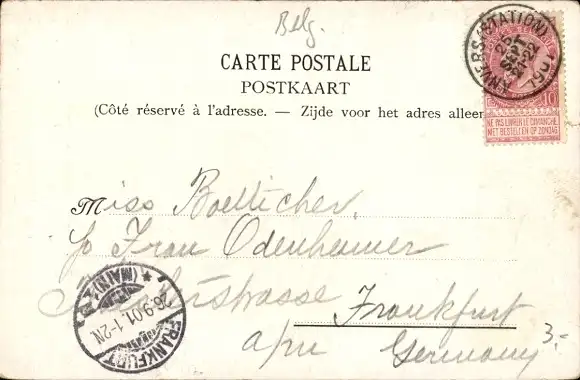 Belg.
CARTE POSTALE
POSTKAART
(Côté réservé à l'adresse. — Zijde voor het adres alleen
ANVERS (STATION)
25
SEPT
1901
10
NE PAS LIVRER LE DIMANCHE
NIET BESTELLEN OP ZONDAG
Miss Boetticher
c/o Frau Odenheimer
Frankfurt
a/m Germany
3.-
FRANKFURT (MAIN)
26.9.01.1-2N